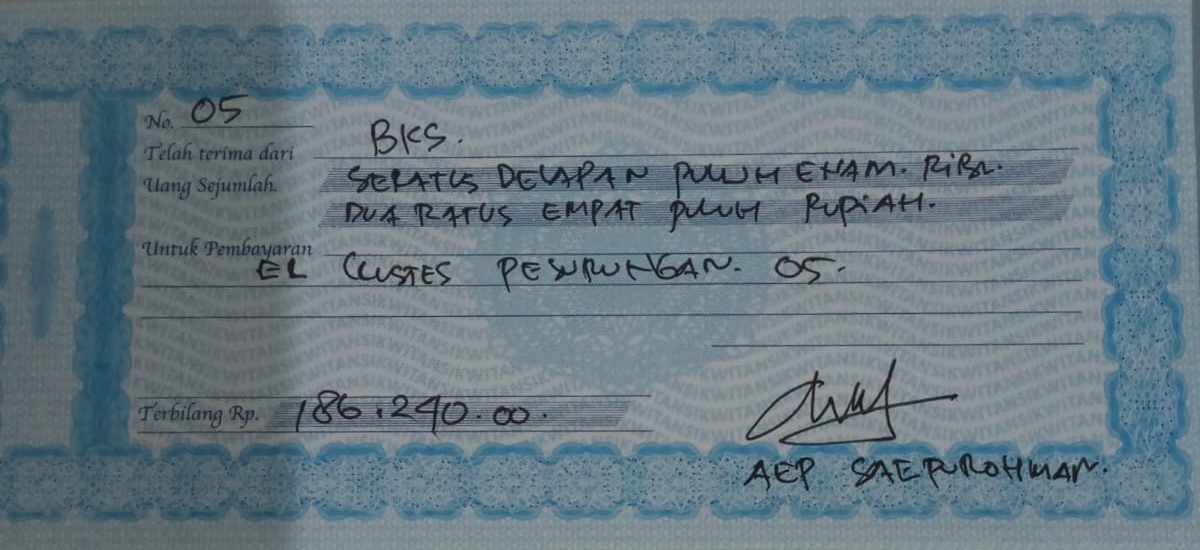 No. 05
Telah terima dari BKS.
Uang Sejumlah. SERATUS DELAPAN PULUH ENAM. RIBU.
DUA RATUS EMPAT PULUH RUPIAH.
Untuk Pembayaran
EL CLUSTES PESURUNGAN. 05.
Terbilang Rp. 186.240.00.
AEP SAEPUROHMAN.